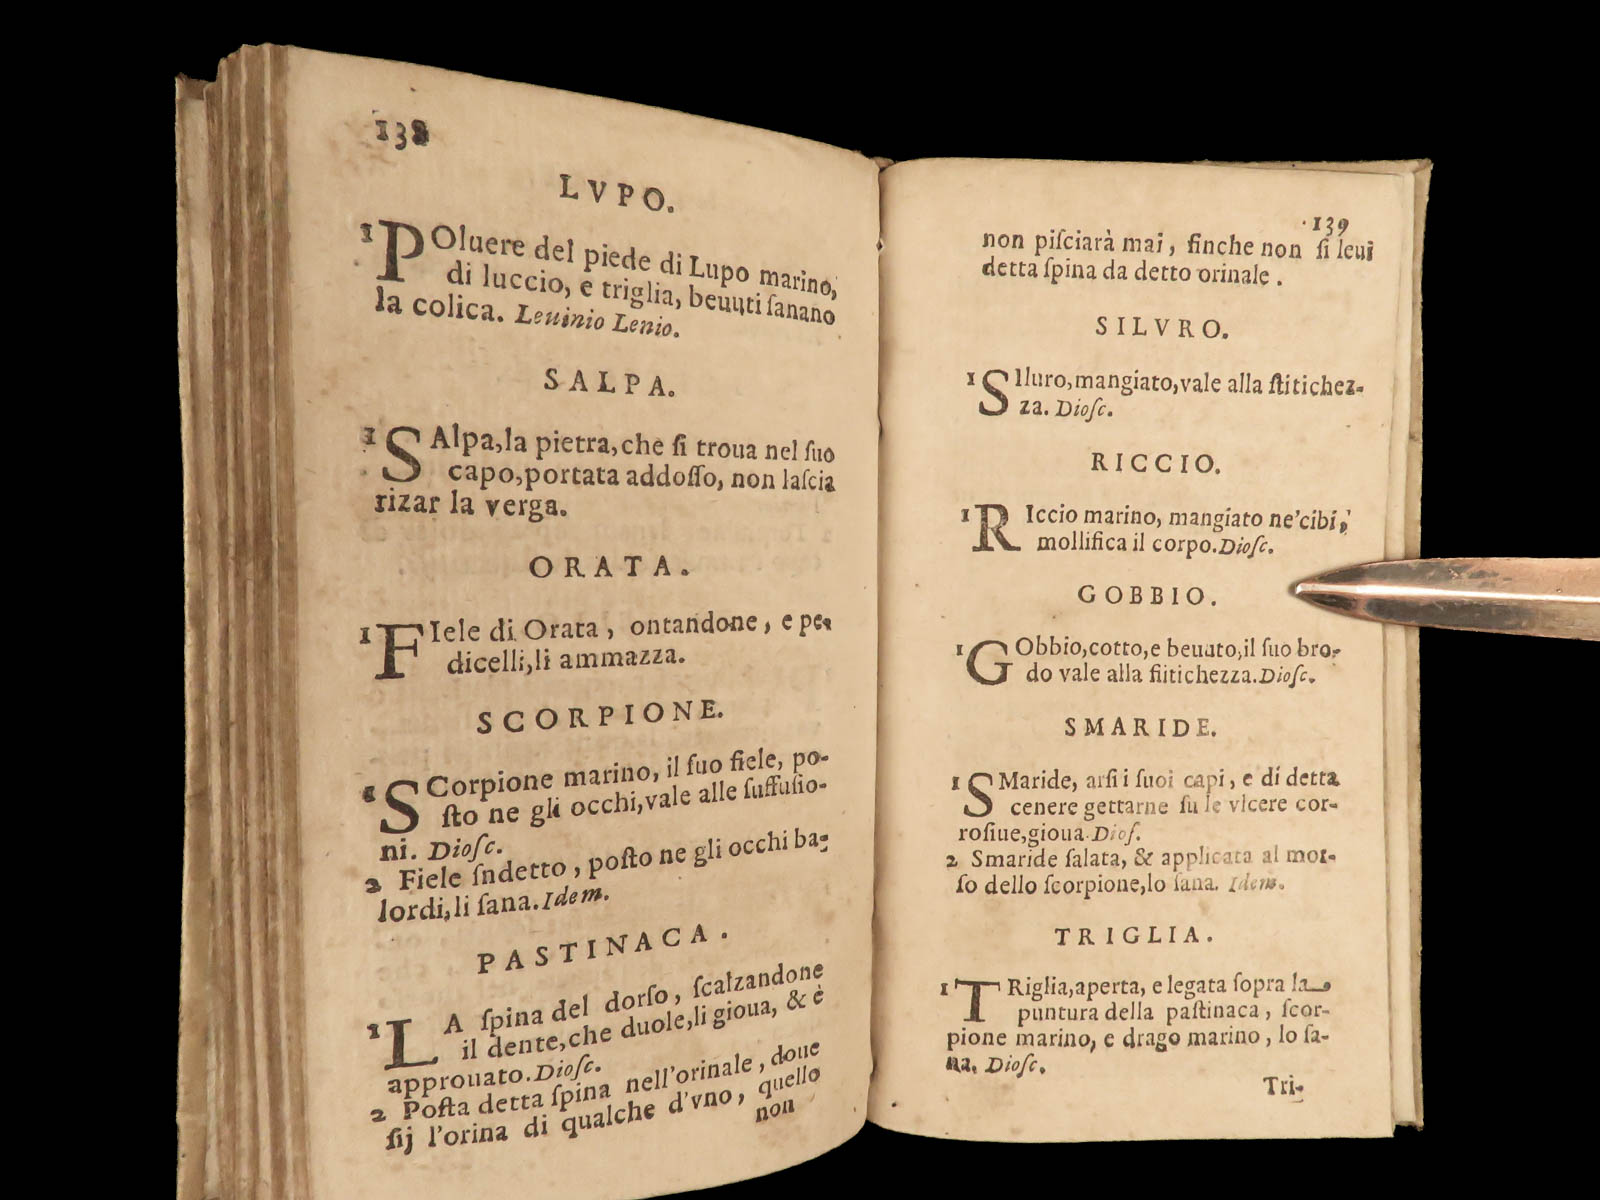 138
LVPO.
1 POluere del piede di Lupo marino,
di luccio, e triglia, beuuti ſanano
la colica. Leuinio Lenio.
SALPA.
1 SAlpa,la pietra,che ſi troua nel ſuo
capo,portata addoſſo, non laſcia
rizar la verga.
ORATA.
1 FIele di Orata, ontandone, e pe-
dicelli,li ammazza.
SCORPIONE.
1 SCorpione marino, il ſuo fiele, po-
ſto ne gli occhi,vale alle ſuffuſio-
ni. Dioſc.
2 Fiele ſndetto, poſto ne gli occhi ba-
lordi,li ſana.Idem.
PASTINACA.
1 LA ſpina del dorſo, ſcalzandone
il dente,che duole,li gioua, & è
approuato.Dioſc.
2 Poſta detta ſpina nell'orinale, doue
ſij l'orina di qualche d'vno, quello
non
139
non piſciarà mai, finche non ſi leui
detta ſpina da detto orinale.
SILVRO.
1 SIluro,mangiato,vale alla ſtitichez-
za. Dioſc.
RICCIO.
1 RIccio marino, mangiato ne'cibi,
mollifica il corpo.Dioſc.
GOBBIO.
1 GObbio,cotto,e beuuto,il ſuo bro-
do vale alla ſtitichezza.Dioſc.
SMARIDE.
1 SMaride, arſi i ſuoi capi, e di detta
cenere gettarne ſu le vlcere cor-
roſiue,gioua.Dioſ.
2 Smaride ſalata, & applicata al mor-
ſo dello ſcorpione,lo ſana. Idem.
TRIGLIA.
1 TRiglia,aperta, e legata ſopra la
puntura della paſtinaca, ſcor-
pione marino, e drago marino, lo ſa-
na. Dioſc.
Tri-